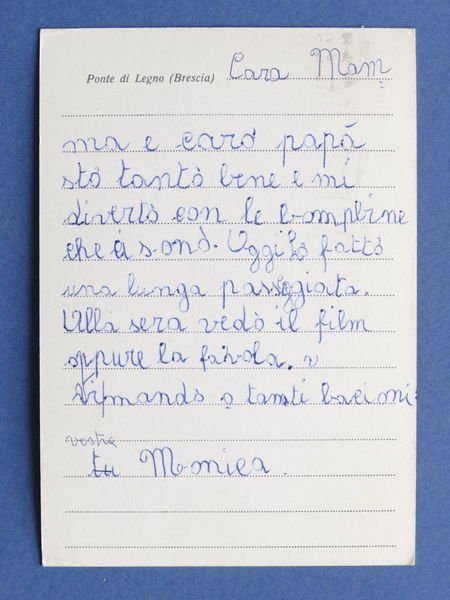 Ponte di Legno (Brescia) Cara Mam
ma e caro papà
sto tanto bene e mi
diverto con le bambine
che ci sono. Oggi ho fatto
una lunga passeggiata.
Alla sera vedo il film
oppure la favola. vi
rimando tanti baci mi
vostra
tu Monica.